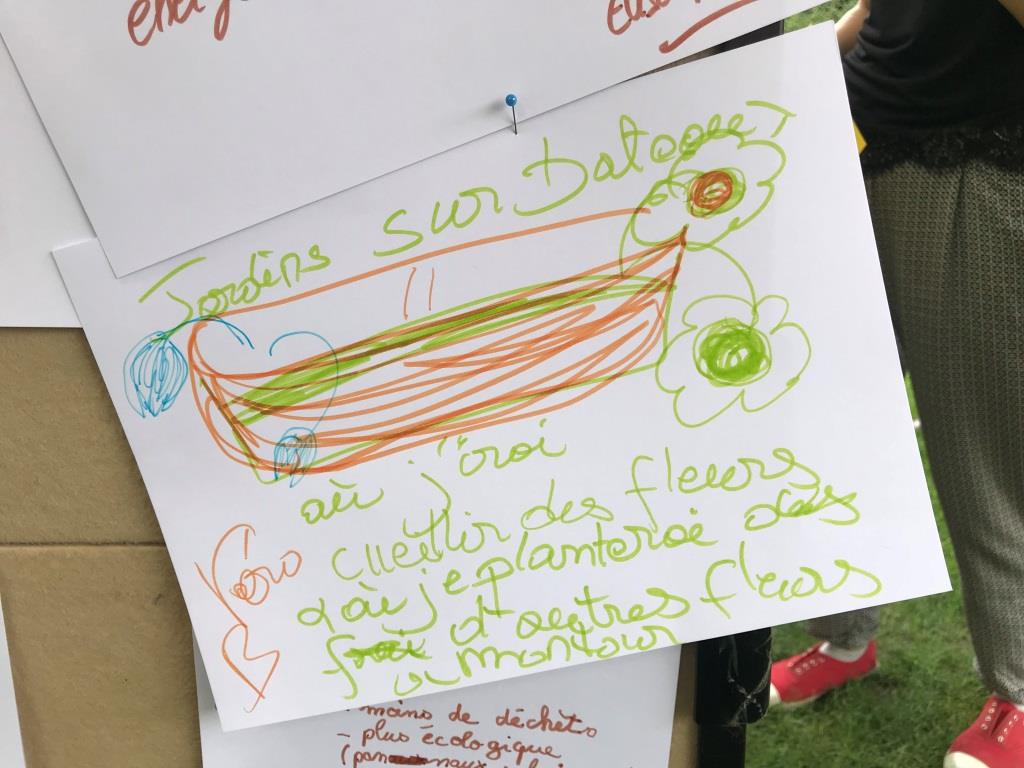 Jardins sur Bateau
où j'irai
cueillir des fleurs
& où je planterai des
d'autres fleurs
à mon tour
Véro
B
moins de déchèts
- plus écologique